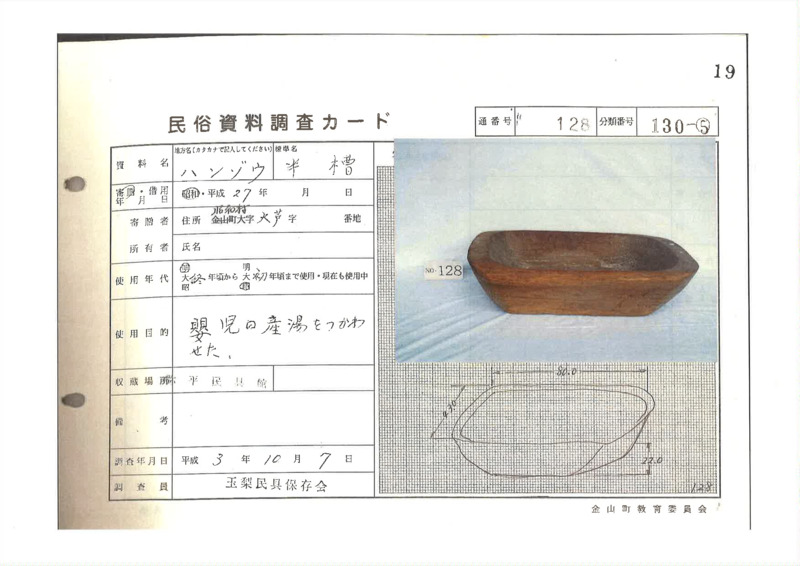 19
民俗資料調査カード
通番号 128 分類番号 130-⑤
資料名 地方名(カタカナで記入してください) ハンゾウ 標準名 半槽
寄贈・借用年月日 昭和・平成 27年 月 日
寄贈者 住所 昭和村 金山町大字 大芦 字 番地
所有者 氏名
使用年代 明大昭 終年頃から 明大昭 初年頃まで使用・現在も使用中
使用目的 嬰児の産湯をつかわ
せた。
収蔵場所
備考
調査年月日 平成 3年 10月 7日
調査員 玉梨民具保存会
NO. 128
80.0
43.0
22.0
128
金山町教育委員会